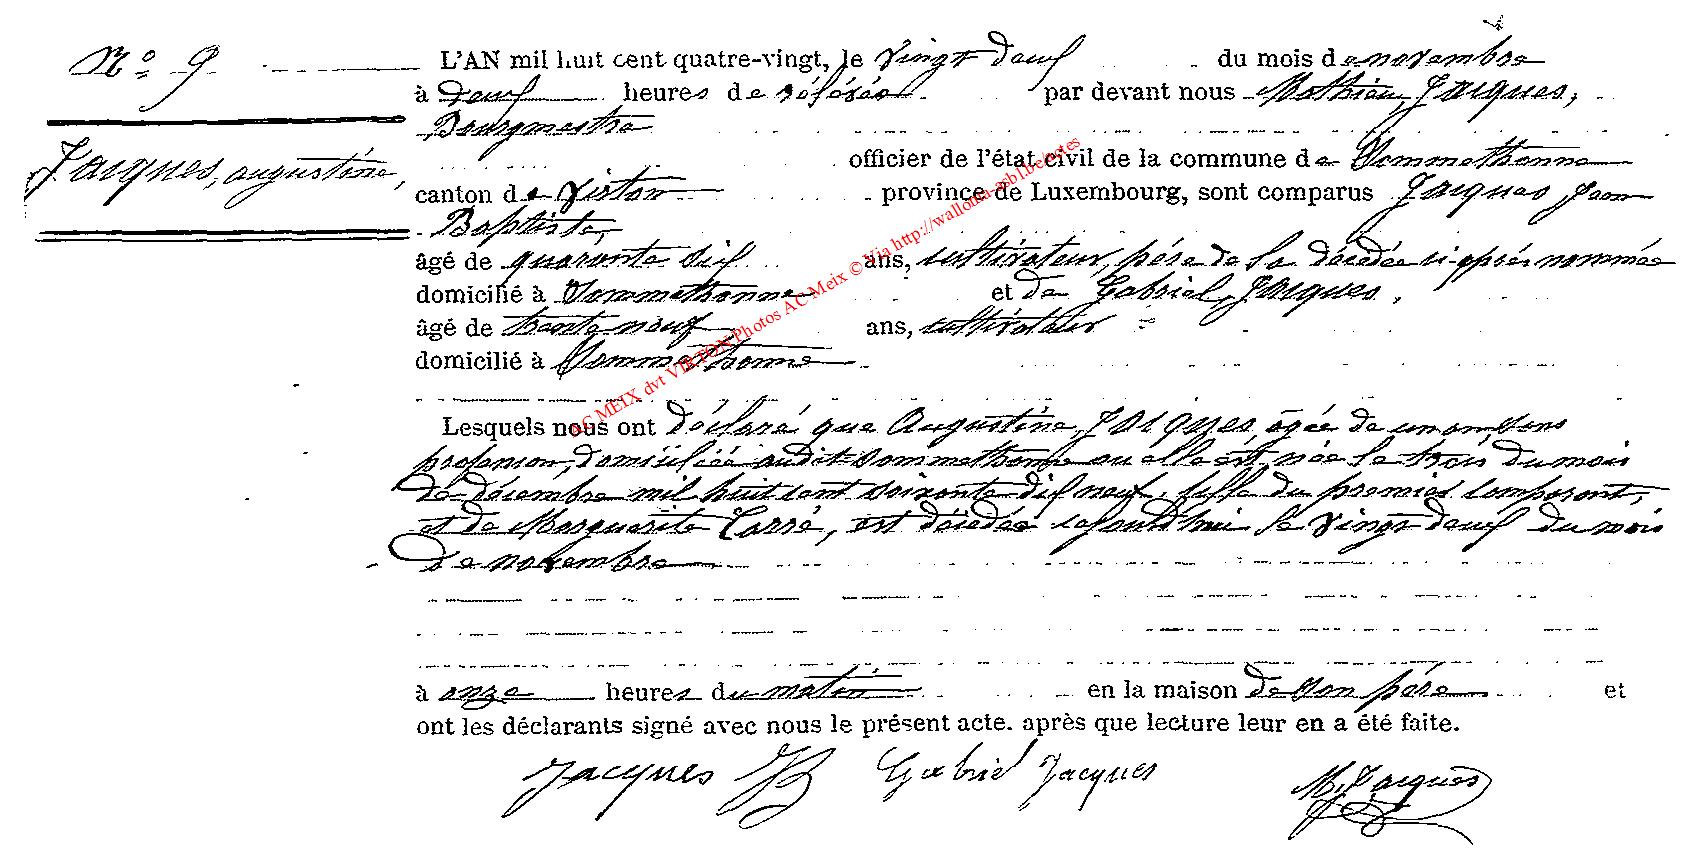 N° 9
Jacques, augustine,
L'AN mil huit cent quatre-vingt, le vingt deux du mois de novembre
à deux heures de relevée par devant nous Mathieu Jacques,
Bourgmestre
officier de l'état civil de la commune de Sommethonne
canton de Virton province de Luxembourg, sont comparus Jacques Jean
Baptiste,
âgé de quarante six ans, cultivateur, père de la décédée ci-après nommée
domicilié à Sommethonne et de Gabriel Jacques,
âgé de trente neuf ans, cultivateur
domicilié à Sommethonne
Lesquels nous ont déclaré que Augustine Jacques, âgée de un an, sans
profession, domiciliée audit Sommethonne ou elle est née le trois du mois
de décembre mil huit cent soixante dix neuf, fille du premier comparant,
et de Marguerite Carré, est décédée cejourd'hui le vingt deux du mois
de novembre
à onze heures du matin en la maison de son père et
ont les déclarants signé avec nous le présent acte. après que lecture leur en a été faite.
Jacques JB Gabriel Jacques M. Jacques
AC MEIX dvt VIRTON Photos AC Meix © Via http://wallonia-asbl.be/notes